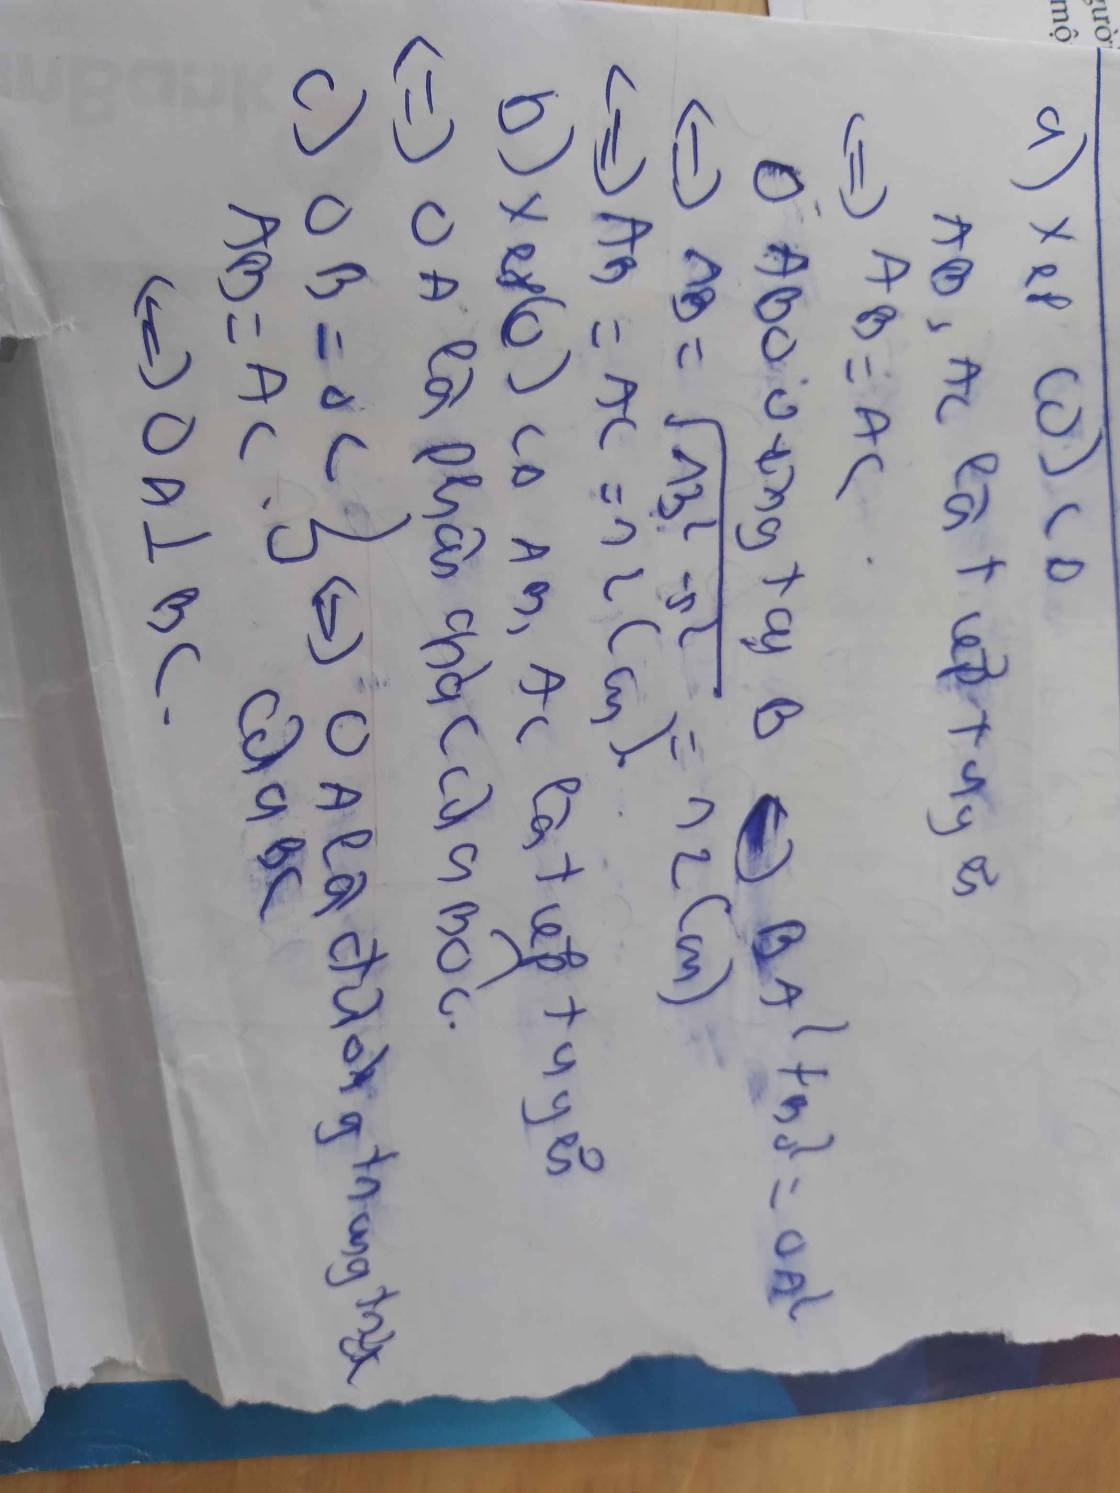 a) Xét (O) có
AB, AC là tiếp tuyến
<=> AB = AC
Δ ABO vuông tại B <=> BA² + BO² = OA²
<=> AB = √13² - 5² = 12 (cm)
<=> AB = AC = 12 (cm).
b) Xét (O) có AB, AC là tiếp tuyến
<=> OA là phân giác của BOC.
c) OB = OC } <=> OA là đường trung trực
AB = AC. của BC
<=> OA ⊥ BC.
gười
mộ
nBank